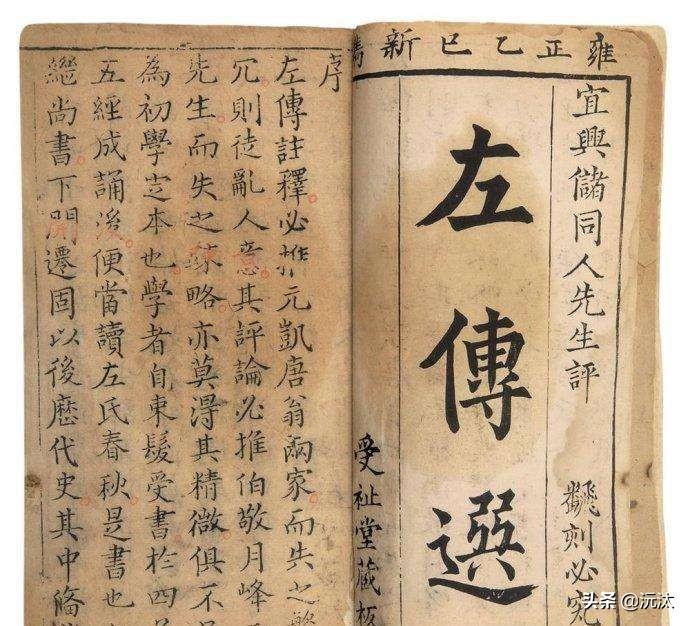 雍正乙巳新鐫
宜興儲同人先生評
飜刻必究
左傳選
受祉堂藏板
序
左傳註釋必推元凱唐翁兩家而失之繁
冗則徒亂人意其評論必推伯敬月峰
先生而失之疎略亦莫淂其精微俱不
為初學定本也學者自束髮受書於四
五經成誦後便當讀左氏春秋是書也
尚書下開遷固以後歷代史其中條
头条 @沅汰